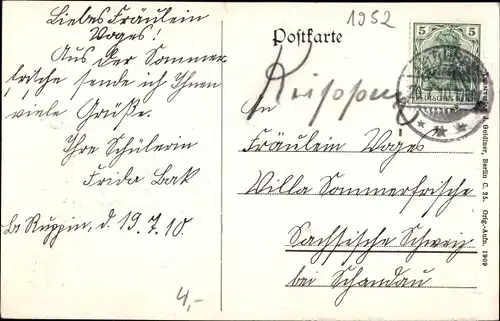 Liebes Fräulein
Voges!
Aus der Sommer
frische sende ich Ihnen
viele Grüße.
Ihre Schülerin
Frida Bak
Ruppin, d. 19.7.10.
4,-
1952
Postkarte
5 5
An
Fräulein Voges
Villa Sommerfrische
Sächsische Schweiz
bei Schandau
J. Goldiner, Berlin C. 25. Orig.-Aufn. 1909